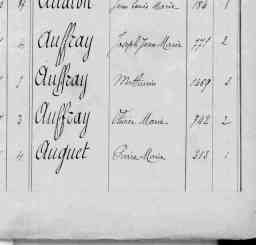 Jean Louis Marie 184 1
4 Auffray Joseph Jean Marie 777 2
Auffray Mathurin 1069 2
3 Auffray Pierre Marie 942 2
4 Auguet Pierre Marie 313 1